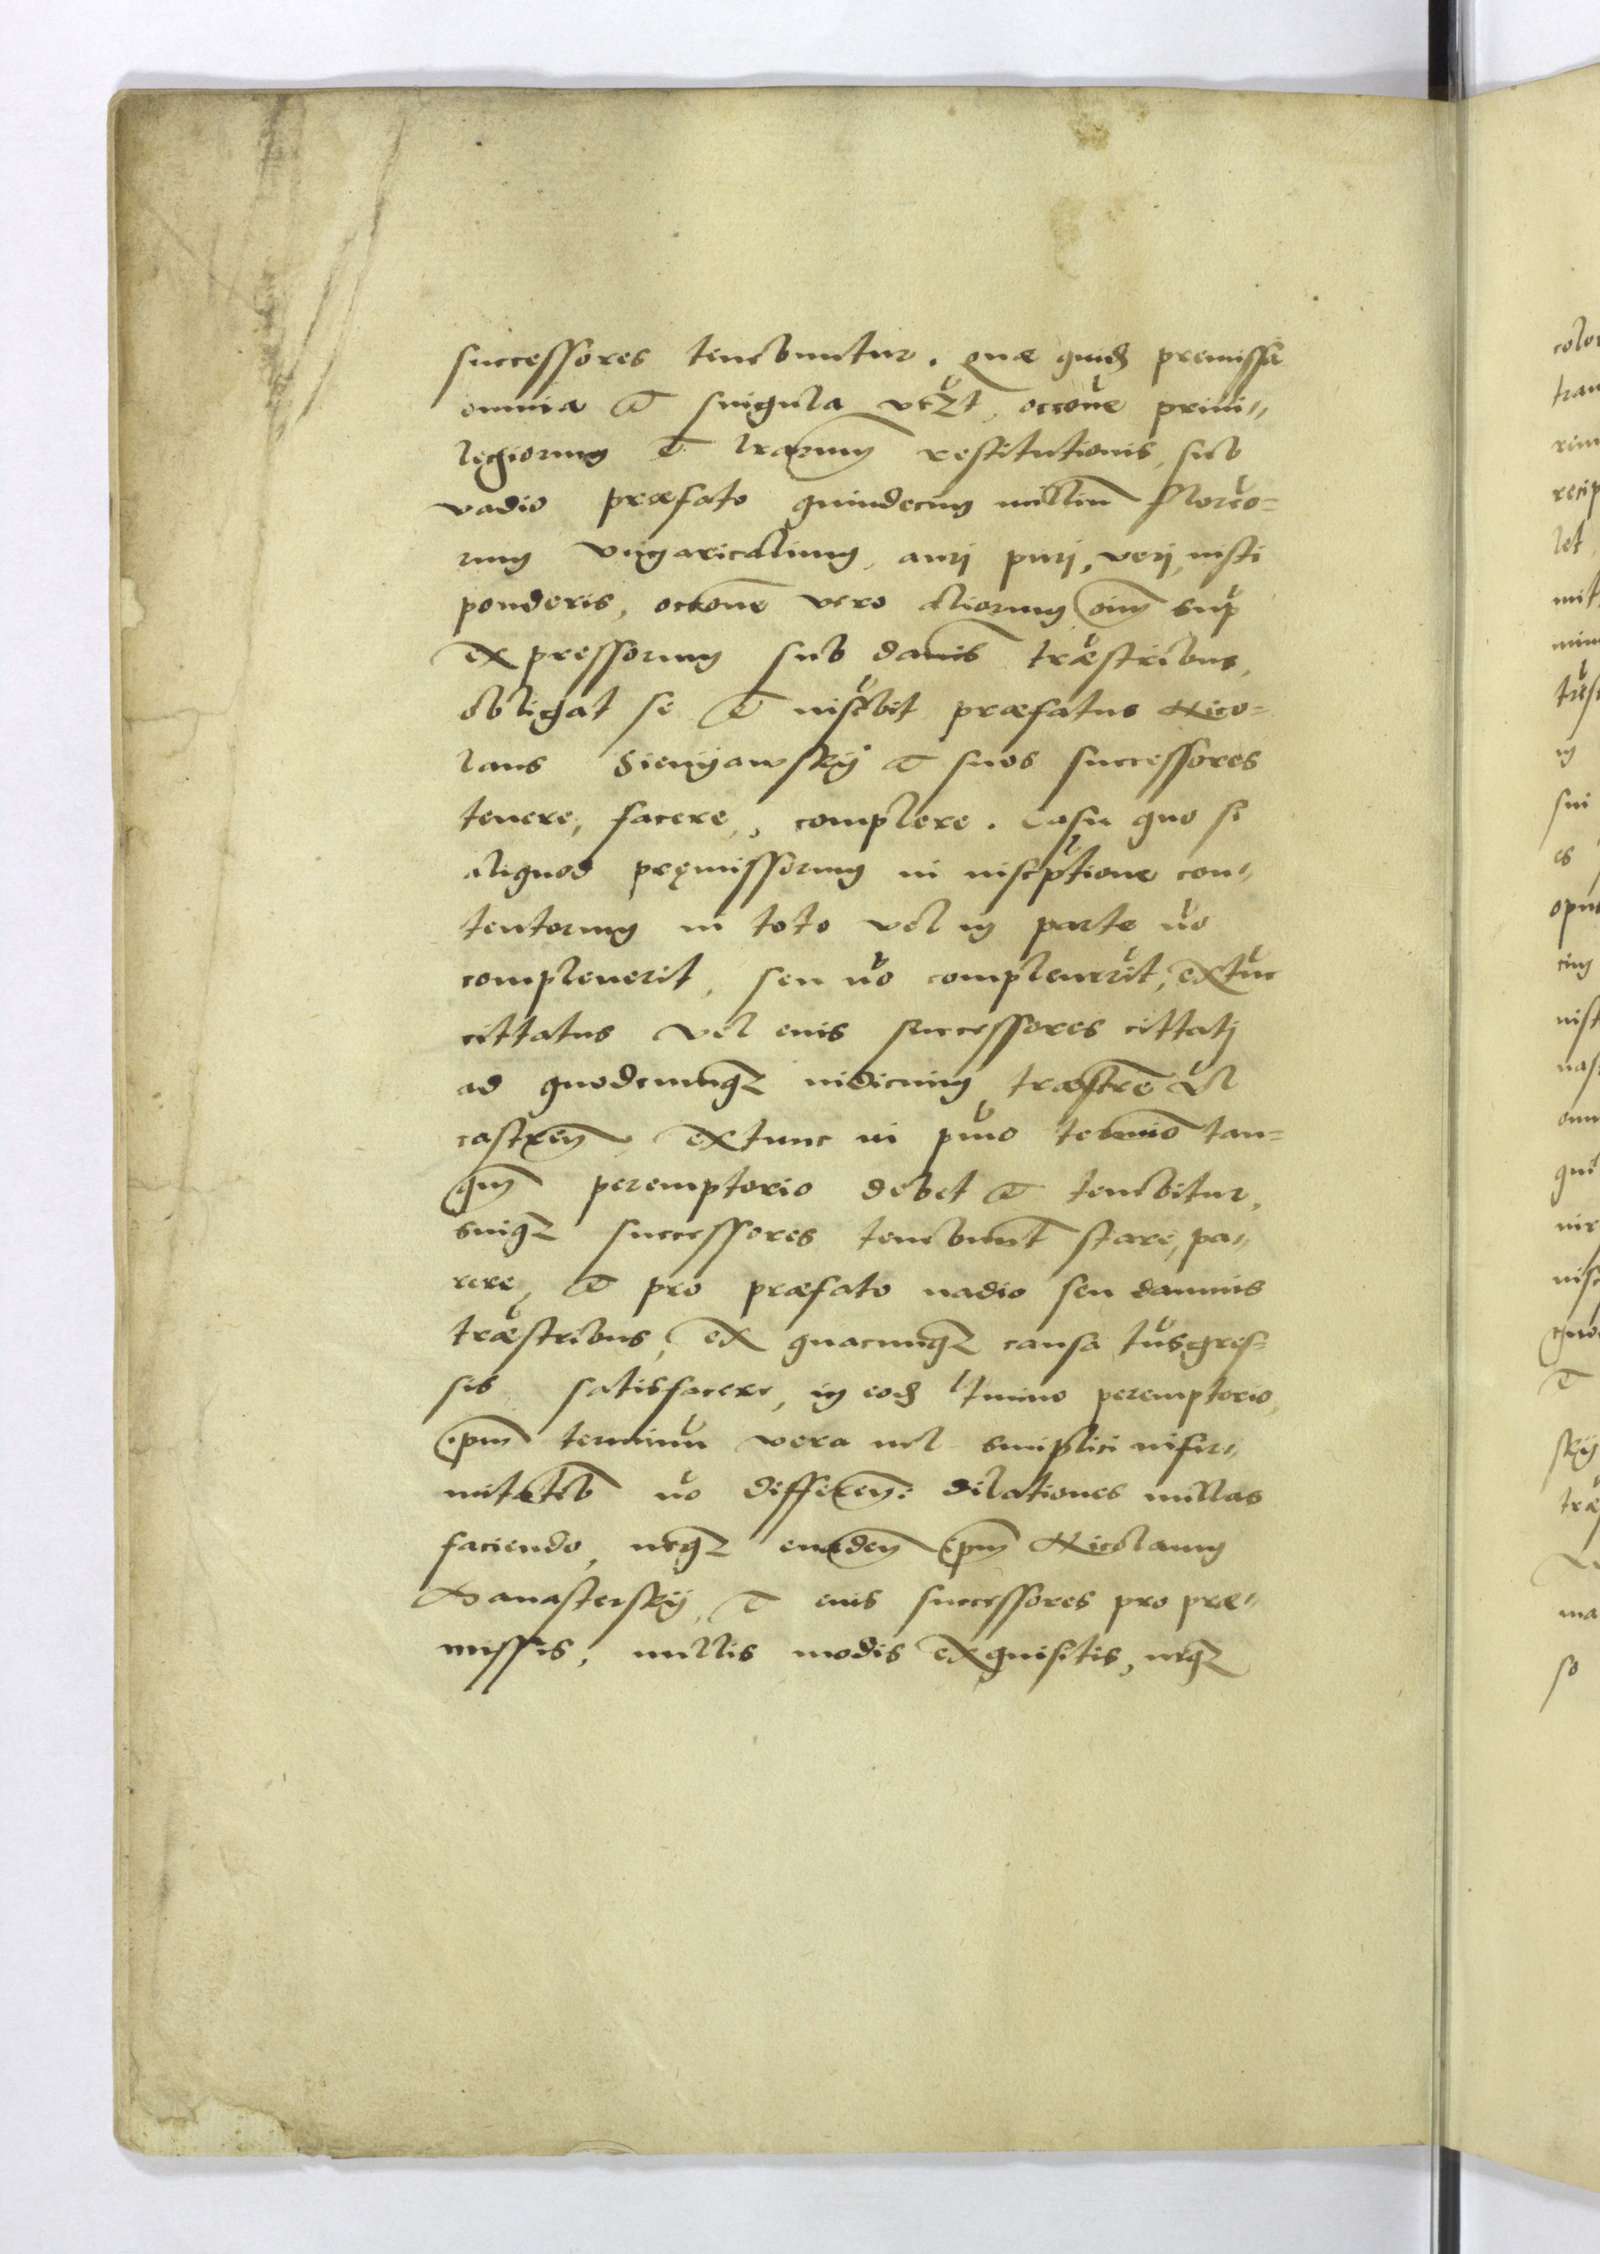 successores tenebuntur. Quæ quid(em) premissa
omnia et singula vtzt, occo(n)e priui〃
legiorum et l(ite)rarum restitutionis, sub
vadio præfato quindecim milliu(m) floreo=
rum vngaricalium, aurj purj, verj, iusti
ponderis, occone(m) vero aliorum oim sup
expressorum sub damis træstribus,
obligat se et inscbit præfatus Nico=
laus Sienÿawskÿ et suos successores
tenere, facere, complere. Casu quo si
aliquod pręmissorum in inscptione con〃
tentorum in toto vel in parte no
compleuerit, seu no compleuerit, extunc
cittatus vel eius successores cittatj
ad quodcunqz iudicium træstre vel
castren, extunc in pmo termino tan=
qm peremptorio debet et tenebitur,
suiqz successores tenebunt stare, pa〃
rere, et pro præfato vadio seu damnis
træstribus, ex quacunqz causa tnsgres=
sis satisfacere, in eod tmino peremptorio,
ipm terminu vera uel simplici infir〃
mitatib no differen: dilationes nullas
faciendo, neqz euaden ipm Nicolaum
Wanasterskÿ, et eius successores pro præ〃
missis, nullis modis exquisitis, neqz